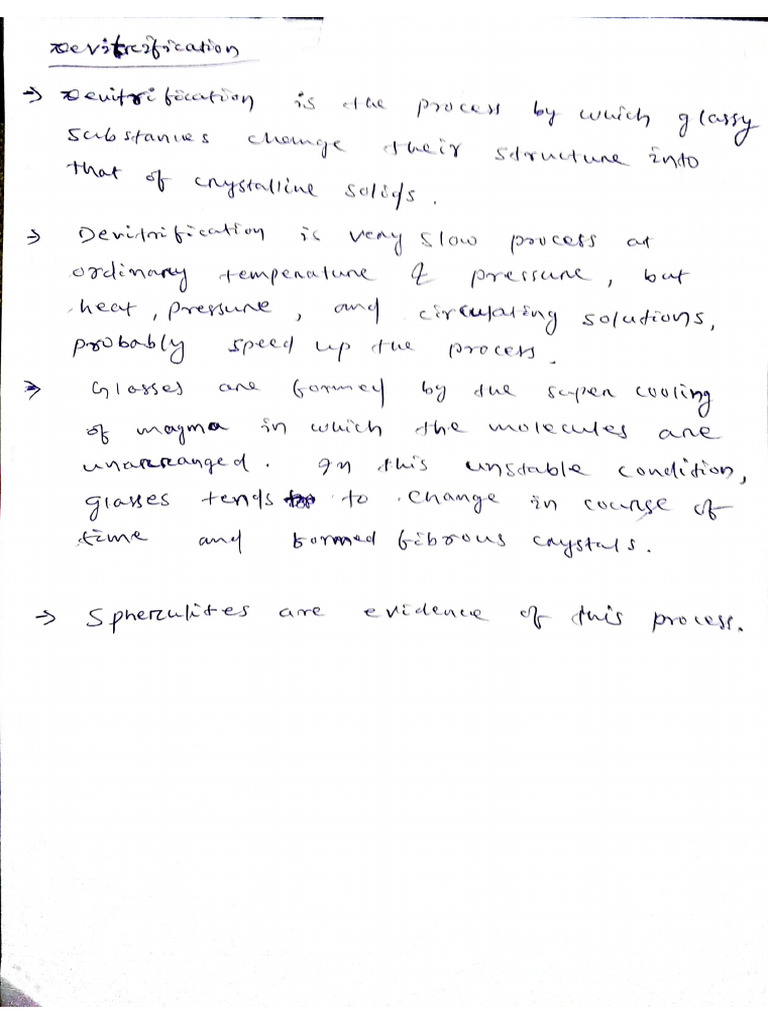 Devitrification
→ Devitrification is the process by which glassy
substances change their structure into
that of crystalline solids.
→ Devitrification is very slow process at
ordinary temperature & pressure, but
heat, pressure, and circulating solutions,
probably speed up the process.
→ Glasses are formed by the super cooling
of magma in which the molecules are
unarranged. In this unstable condition,
glasses tends to change in course of
time and formed fibrous crystals.
→ Spherulites are evidence of this process.